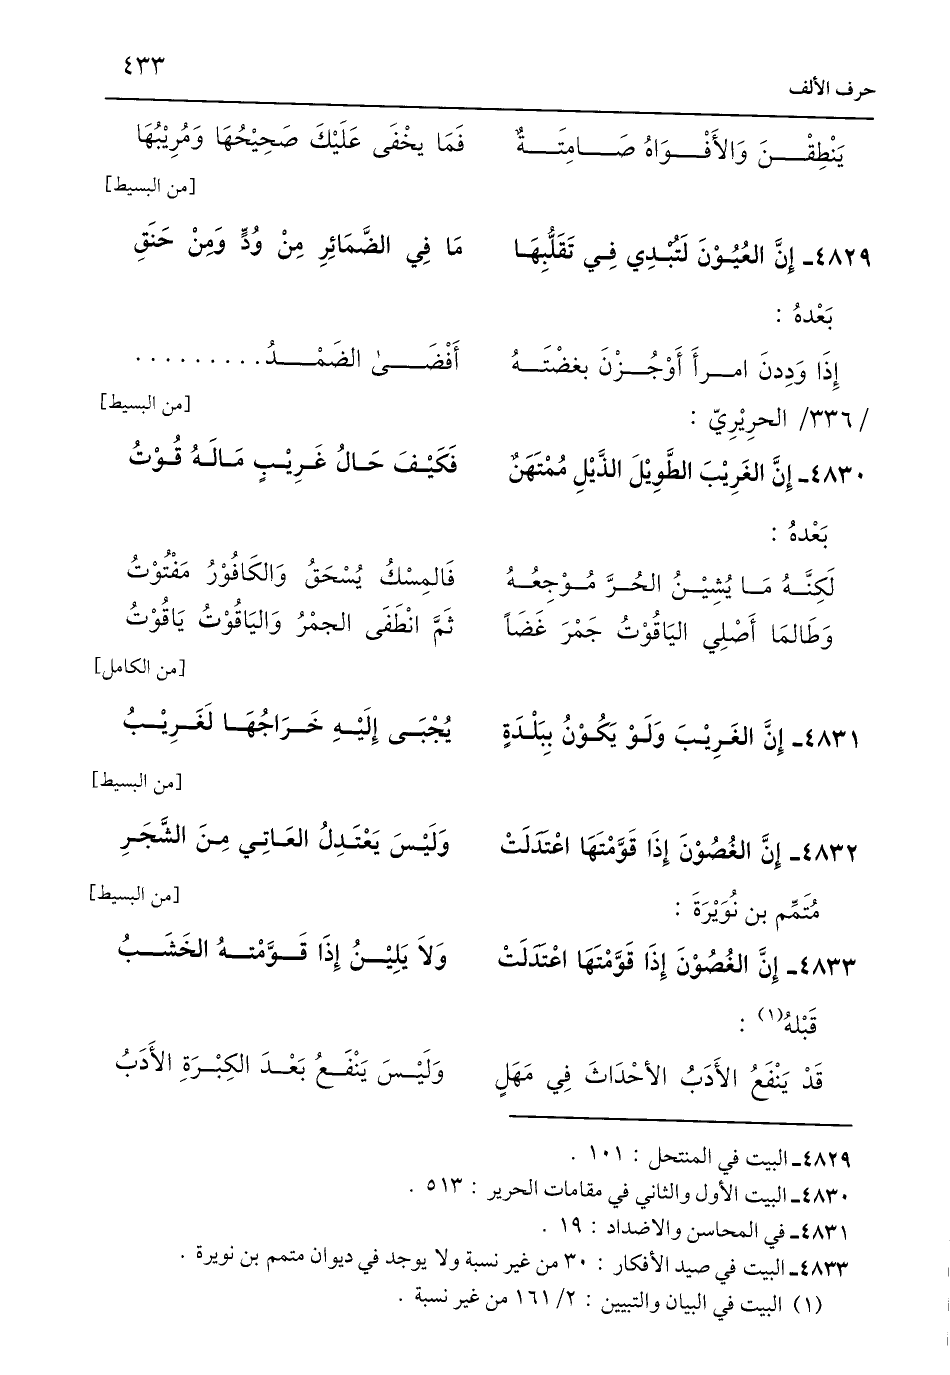 ٤٣٣
حرف الألف
يَنْطِقْنَ وَالأَفْوَاهُ صَامِتَةٌ فَمَا يخْفَى عَلَيْكَ صَحِيْحُهَا وَمُرِيْبُهَا
[من البسيط]
٤٨٢٩ـ إِنَّ العُيُوْنَ لَتُبْدِي فِي تَقَلُّبِهَا مَا فِي الضَّمَائِرِ مِنْ وُدٍّ وَمِنْ حَنَقِ
بَعْدهُ :
إِذَا وَدِدنَ امرأَ أَوْجُزْنَ بغضْتَهُ أَفْضَىٰ الضَمْدُ . . . . . . . . .
/ ٣٣٦/ الحرِيْرِيّ :
[من البسيط]
٤٨٣٠ـ إِنَّ الغَرِيْبَ الطَّوِيْلَ الذَّيْلِ مُمْتَهَنٌ فَكَيْفَ حَالُ غَرِيْبٍ مَالَهُ قُوْتُ
بَعْدهُ :
لَكِنَّهُ مَا يُشِيْنُ الحُرَّ مُوْجِعُهُ فَالمِسْكُ يُسْحَقُ وَالكَافُوْرُ مَفْتُوْتُ
وَطَالمَا أُصْلِي اليَاقُوْتُ جَمْرَ غَضَاً ثمَّ انْطَفَى الجمْرُ وَاليَاقُوْتُ يَاقُوْتُ
[من الكامل]
٤٨٣١ـ إِنَّ الغَرِيْبَ وَلَوْ يَكُوْنُ بِبَلْدَةٍ يُجْبَى إِلَيْهِ خَرَاجُهَا لَغَرِيْبُ
[من البسيط]
٤٨٣٢ـ إِنَّ الغُصُوْنَ إِذَا قَوَّمْتَهَا اعْتَدَلَتْ وَلَيْسَ يَعْتَدِلُ العَاتِي مِنَ الشَّجَرِ
[من البسيط]
مُتَمِّم بن نُوَيْرَةَ :
٤٨٣٣ـ إِنَّ الغُصُوْنَ إِذَا قَوَّمْتَهَا اعْتَدَلَتْ وَلاَ يَلِيْنُ إِذَا قَوَّمْتهُ الخَشَبُ
قَبْلهُ(١) :
قَدْ يَنْفَعُ الأَدَبُ الأحْدَاثَ فِي مَهَلٍ وَلَيْسَ يَنْفَعُ بَعْدَ الكِبْرَةِ الأَدَبُ
٤٨٢٩ـ البيت في المنتحل : ١٠١ .
٤٨٣٠ـ البيت الأول والثاني في مقامات الحرير : ٥١٣ .
٤٨٣١ـ في المحاسن والاضداد : ١٩ .
٤٨٣٣ـ البيت في صيد الأفكار : ٣٠ من غير نسبة ولا يوجد في ديوان متمم بن نويرة .
(١) البيت في البيان والتبيين : ٢/ ١٦١ من غير نسبة .